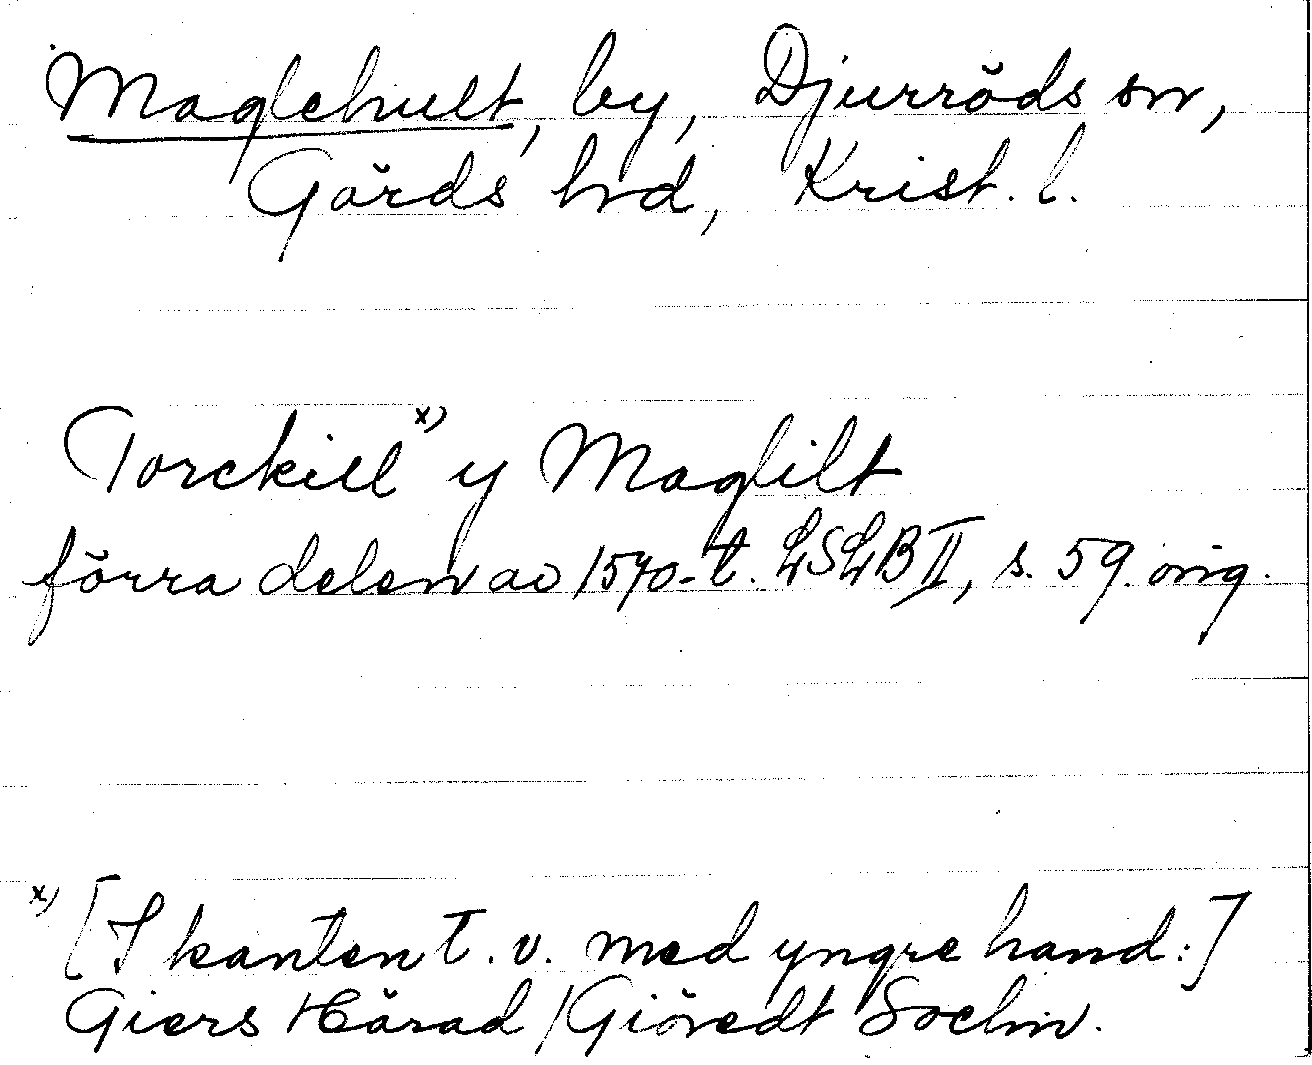 Maglehult, by, Djurröds sn,
Gärds hrd, Krist. l.
Torckill x) y Maglilt
förra delen av 1570-t. LSLB II, s. 59. orig.
x) [I kanten t. v. med yngre hand:]
Giers Härad / Giöredt Sochn.